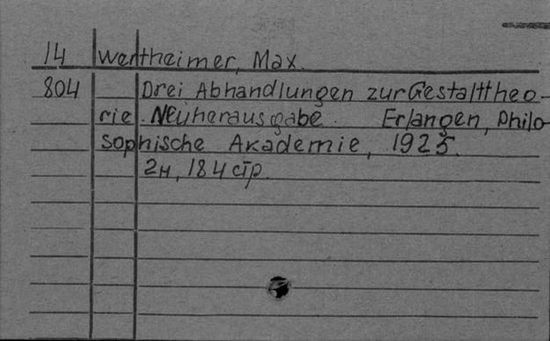 14 Wertheimer, Max.
804 Drei Abhandlungen zur Gestalttheo-
rie. Neuherausgabe. Erlangen, Philo-
sophische Akademie, 1925.
2н, 184 стр.